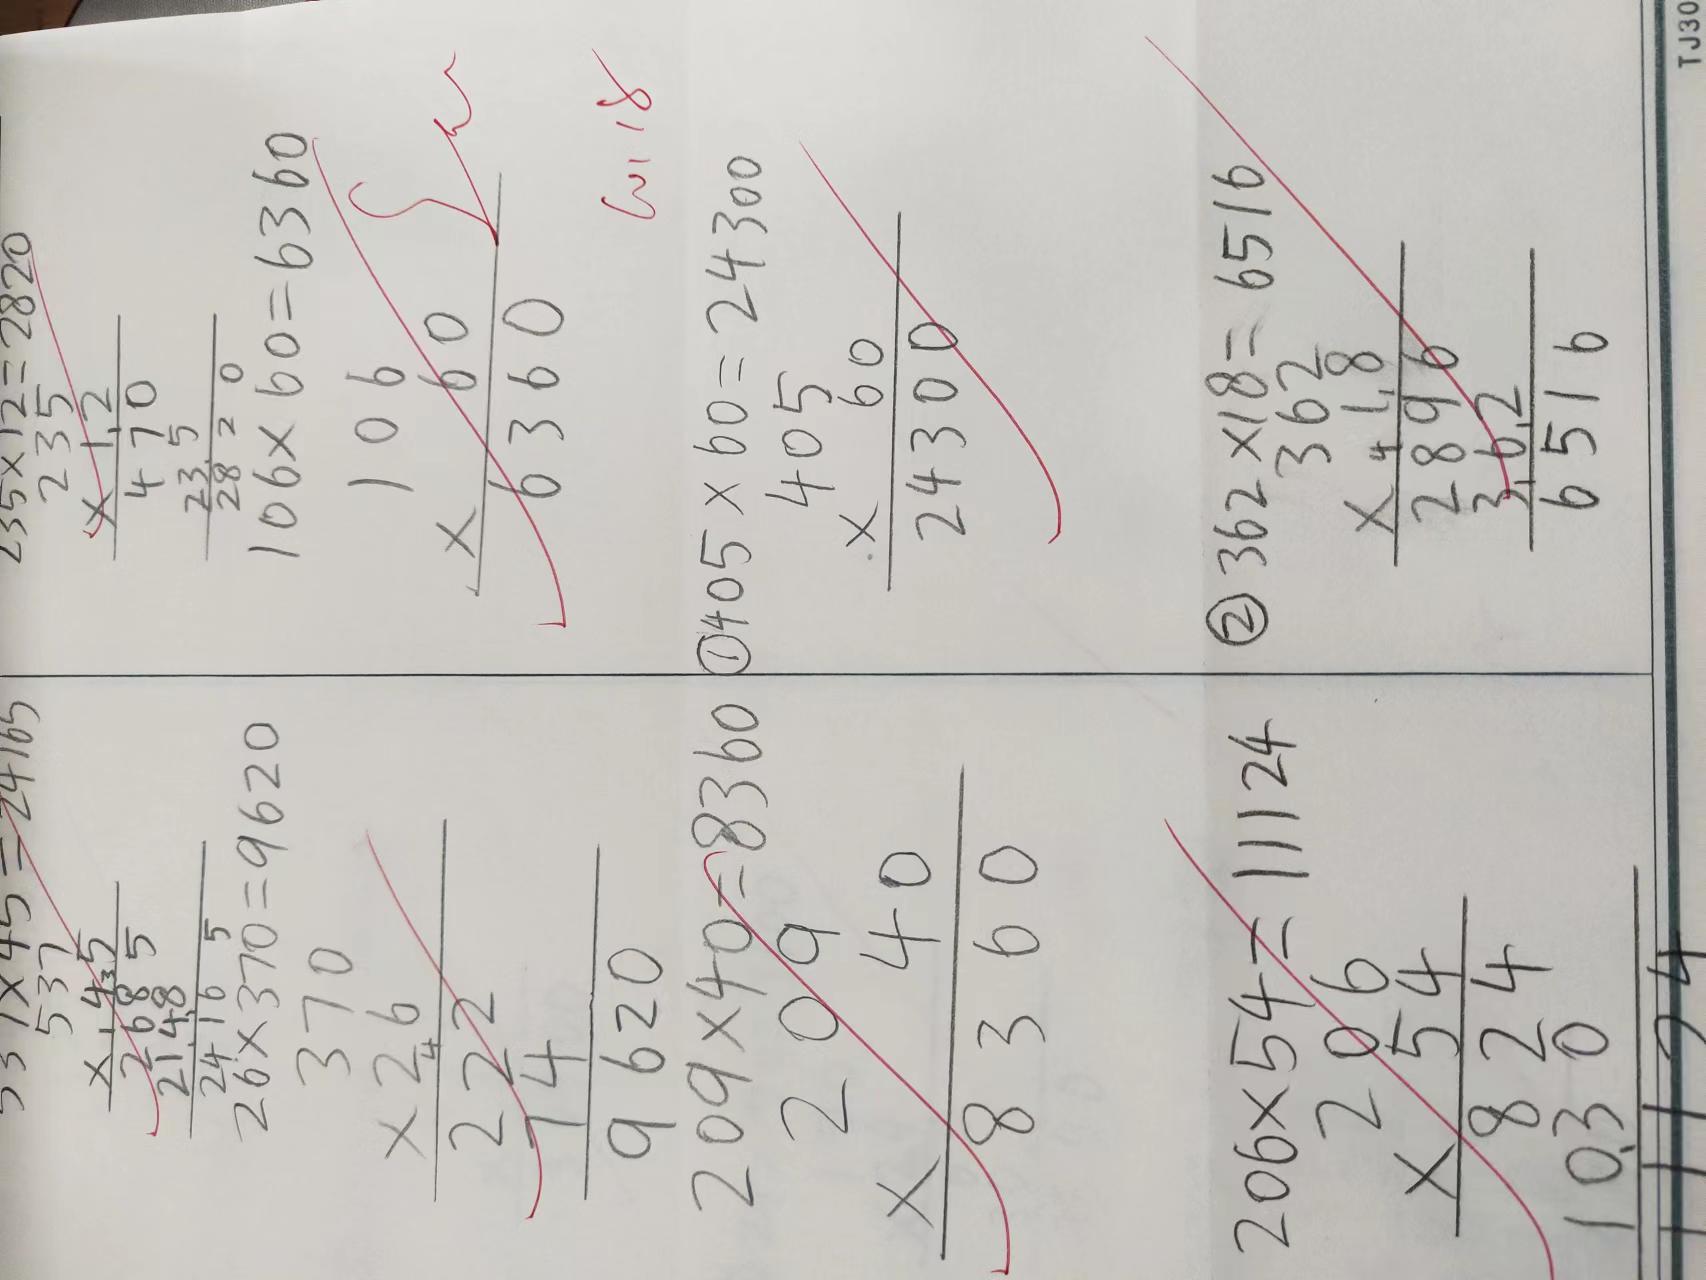 537×45=24165
537
×45
2685
2148
24165
26×370=9620
370
×26
222
74
9620
209×40=8360
209
×40
8360
206×54=11124
206
×54
824
1030
11124
235×12=2820
235
×12
470
235
2820
106×60=6360
106
×60
6360
①405×60=24300
405
×60
24300
②362×18=6516
362
×18
2896
362
6516
TJ30